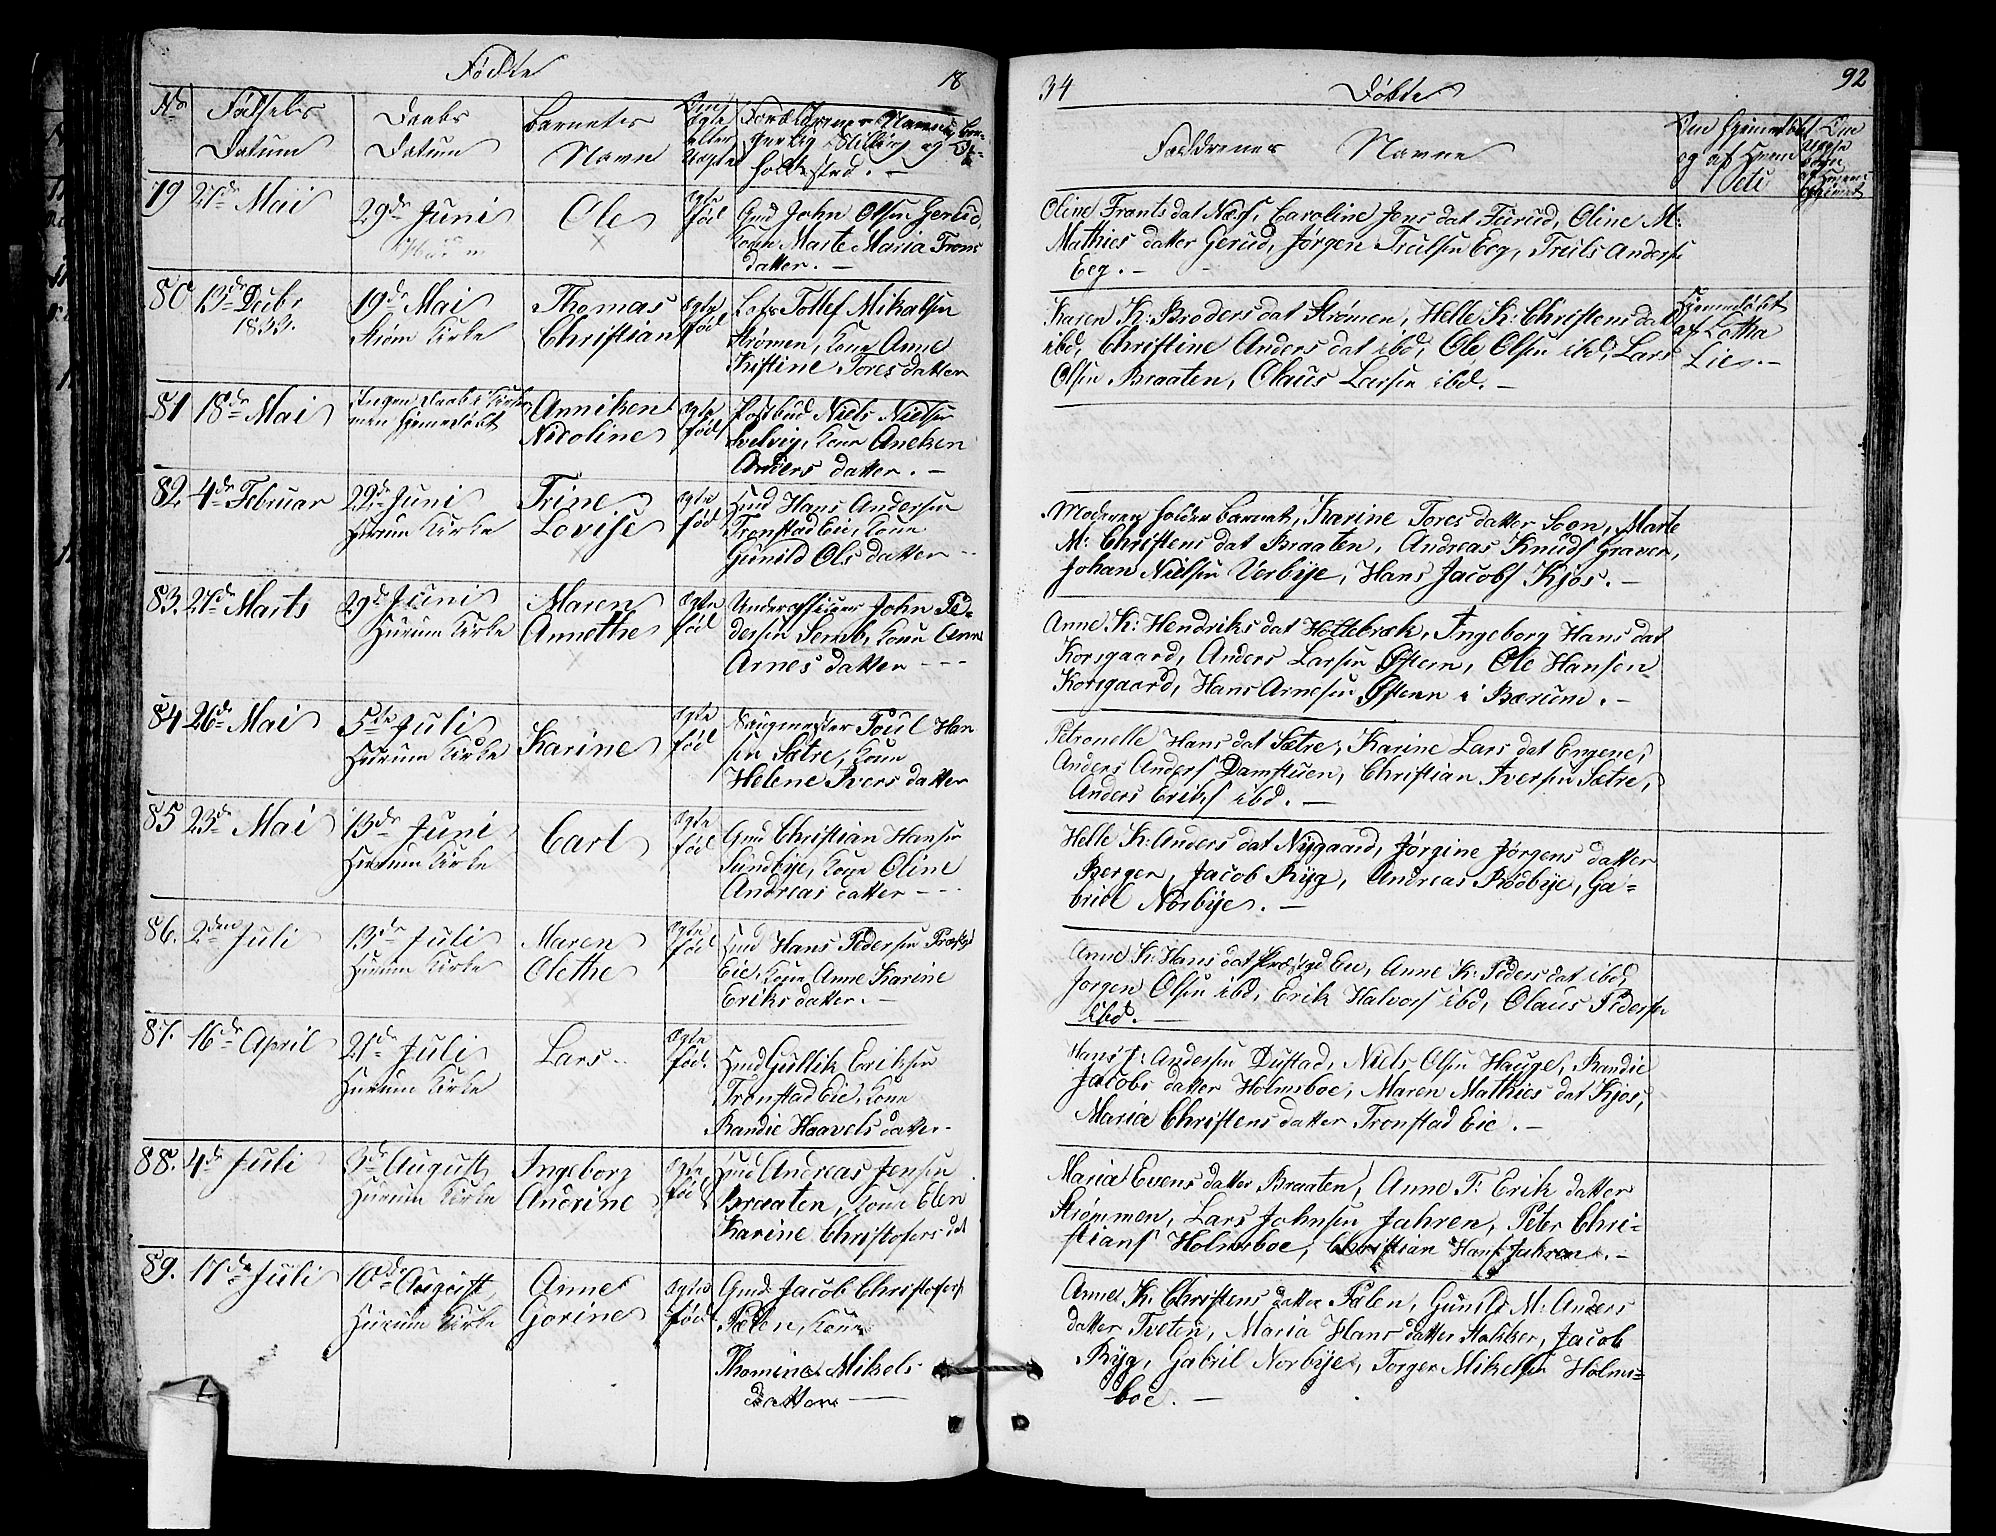 Fødte 18
No
Fødsels Datum
Daabs Datum
Barnets Navn
Om Ægte eller Uægte
Forældrenes Navne, Borgerlig Stilling og Opholdssted.
79 27de Mai
29de Juni
Ole
Ægte fød
Gmd John Olsen Gerud,
Kone Marte Maria Frans
datter. —
80 13de Decbr 1833.
19de Mai
Strøm Kirke
Thomas
Christian
Ægte fød
Lods Tollef Mikalsen
Strømen, Kone Anne
Kistine Toresdatter
81 18de Mai
Ingen Daabs Datum
men hjemmedøbt
Anniken
Nicoline
Ægte fød
Postbud Niels Nielsen
Svelvig, Kone Aneken
Anders datter. —
82 4de Februar
29de Juni
Hurum Kirke
Trine
Lovise
Ægte fød
Hmd Hans Andersen
Tronstad Eie, Kone
Gunild Ols datter --
83. 21de Marts
29de Juni
Hurum Kirke
Maren
Annethe
Ægte fød
Underofficer John Pe-
dersen Semb, Kone Anne
Arnes datter ---
84 26de Mai
5te Juli
Hurum Kirke
Karine
Ægte fød
Saugmester Poul Han
sen Sætre, Kone
Helene Ivers datter
85 23de Mai
13de Juni
Hurum Kirke
Carl
Ægte fød
Gmd Christian Hansen
Sundbye, Kone Oline
Andreas datter ---
86. 2den Juli
13de Juli
Hurum Kirke
Maren
Olethe
Ægte fød
Hmd Hans Pedersen Præstgd
Eie, Kone Anne Karine
Eriks datter. —
87. 16de April
21de Juli
Hurum Kirke
Lars
Ægte fød.
Hmd Gullik Eriksen
Tronstad Eie, Kone
Randie Haavels datter
88. 4de Juli
3de August
Hurum Kirke
Ingeborg
Andrine
Ægte fød
Hmd Andreas Jensen
Braaten, Kone Elen
Karine Christofers dat
89. 17de Juli
10de August
Hurum Kirke
Anne
Gorine
Ægte fød
Gmd Jacob Christofers
Palen, Kone
Thomine Mikels
datter —
34 Døbte 92
Faddrenes Navne
Om hjemmedøbt og af hvem
Oline Frants dat Næss, Caroline Jens dat Teirud, Oline M:
Mathies datter Gerud, Jørgen Trulsen Eeg, Truls Anders
Eeg. —
Karen K: Broders dat Strømen, Helle K: Christens dat
ibd, Christine Anders dat ibd, Ole Olsen ibd, Lars
Olsen Braaten, Olaus Larsen ibd. —
Hjemmedøbt
af Lotha
Lie. —
Moderen holder Barnet, Karine Tores datter Soon, Marte
M: Christens dat Braaten, Andreas Knuds Graver,
Johan Nielsen Verbye, Hans Jacobs Kjos. —
Anne K: Hendriks dat Hottebræk, Ingeborg Hans dat
Korsgaard, Anders Larsen Østern, Ole Hansen
Korsgaard, Hans Arnesen Østern i Bærum. —
Petronelle Hans dat Sætre, Karine Lars dat Engene,
Anders Anders Damstuen, Christian Iversen Sætre,
Anders Eriks ibd. —
Helle K: Anders dat Nygaard, Jørgine Jørgens datter
Bergen, Jacob Ryg, Andreas Rødbye, Ga-
briel Norbye. —
Anne K: Hans dat Præstgd Eie, Anne K: Peders dat ibd,
Jørgen Olsen ibd, Erik Halvors ibd, Olaus Pedersen
ibd. —
Hans J: Andersen Dustad, Niels Olsen Hauge, Randie
Jacobs datter Holmsboe, Maren Mathies dat Kjos,
Maria Christens datter Tronstad Eie. —
Maria Evens datter Braaten, Anne F: Erik datter
Strømmen, Lars Johnsen Jahren, Peter Chri-
stians Holmsboe, Christian Hans Jahren. —
Anne K: Christens datter Palen, Gunild M: Anders
datter Tveten, Maria Hans datter Stokker, Jacob
Ryg, Gabril Norbye, Torger Mikelsen Holms-
boe. —